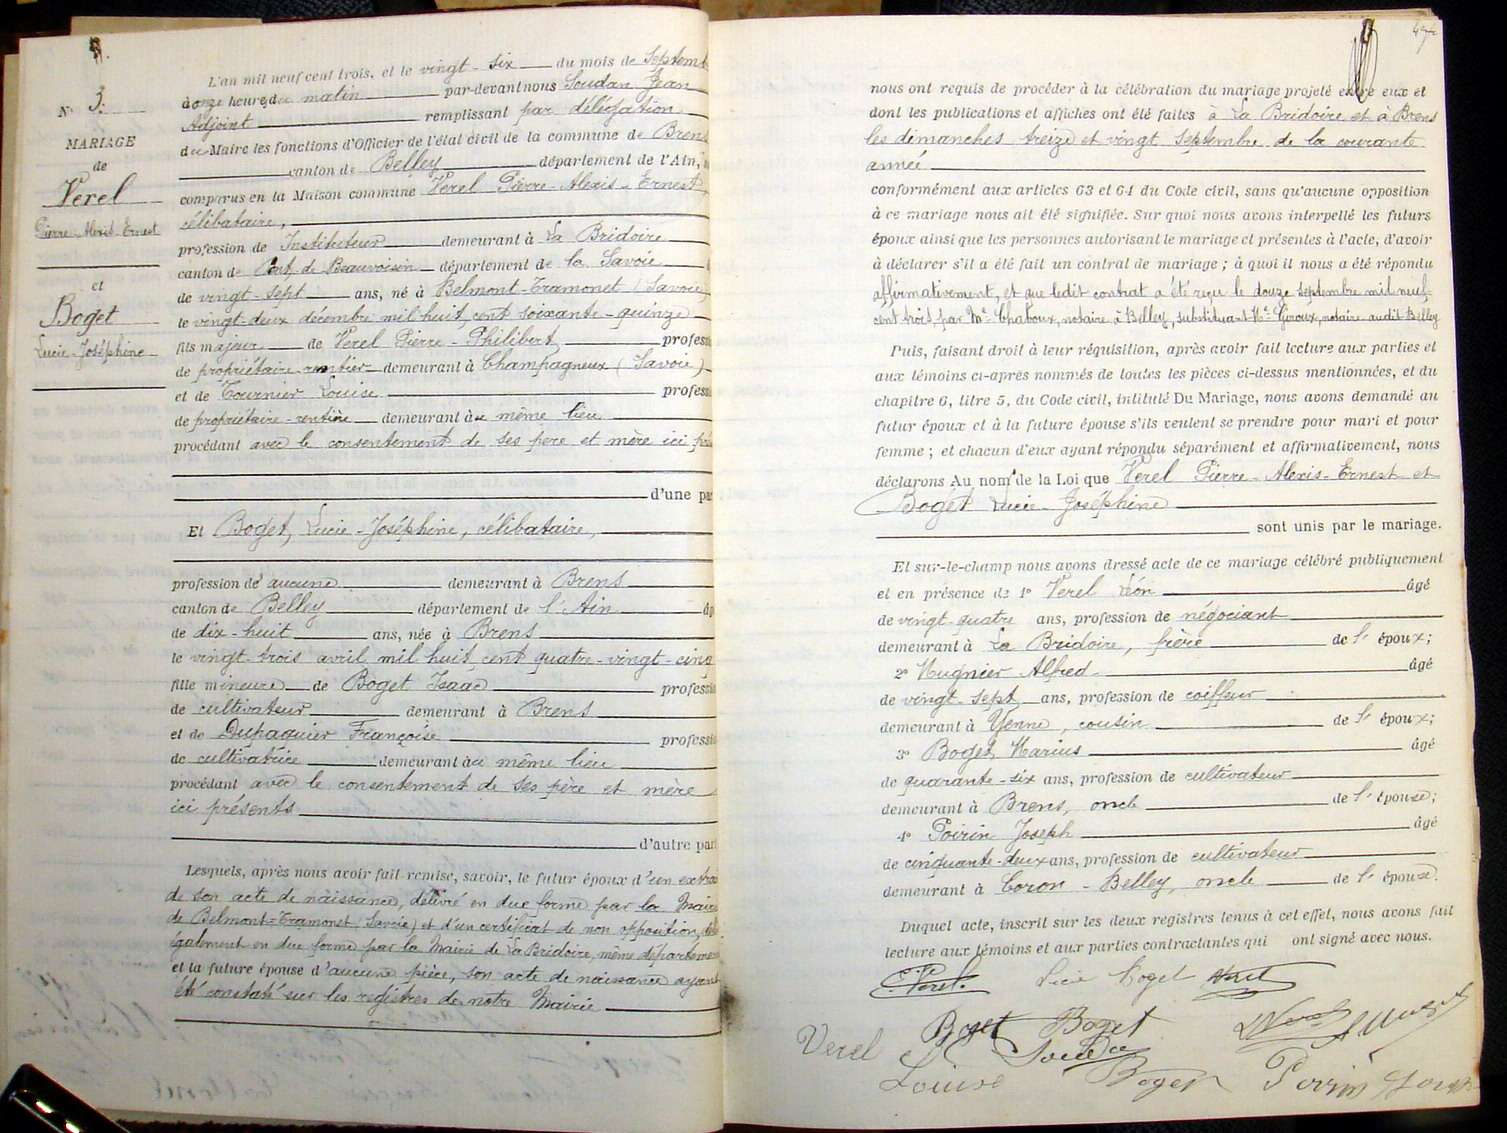 N° 3.
MARIAGE
de
Verel
Pierre-Alexis-Ernest
et
Boget
Lucie-Joséphine
L'an mil neuf cent trois, et le vingt-six du mois de Septemb
à onze heures du matin par-devant nous Soudan Jean
Adjoint remplissant par délégation
du Maire les fonctions d'Officier de l'état civil de la commune de Brens
canton de Belley département de l'Ain,
comparus en la Maison commune Verel Pierre-Alexis-Ernest,
célibataire,
profession de Instituteur demeurant à La Bridoire
canton de Pont de Beauvoisin département de la Savoie
de vingt-sept ans, né à Belmont-Tramonet (Savoie)
le vingt-deux décembre mil huit cent soixante-quinze
fils majeur de Verel Pierre-Philibert, professi
de propriétaire-rentier demeurant à Champagneux (Savoie)
et de Tournier Louise professi
de propriétaire-rentière demeurant au même lieu
procédant avec le consentement de ses père et mère ici pré
d'une par
Et Boget, Lucie-Joséphine, célibataire,
profession de aucune demeurant à Brens
canton de Belley département de l'Ain âg
de dix-huit ans, née à Brens
le vingt-trois avril mil huit cent quatre-vingt-cinq
fille mineure de Boget Isaac professi
de cultivateur demeurant à Brens
et de Duhaquier Françoise professi
de cultivatrice demeurant au même lieu
procédant avec le consentement de ses père et mère
ici présents
d'autre part
Lesquels, après nous avoir fait remise, savoir, le futur époux d'un extrai
de son acte de naissance, délivré en due forme par la Mairie
de Belmont-Tramonet (Savoie) et d'un certificat de non opposition,
également en due forme par la Mairie de La Bridoire, même département
et la future épouse d'aucune pièce, son acte de naissance ayant
été constaté sur les registres de notre Mairie
nous ont requis de procéder à la célébration du mariage projeté entre eux et
dont les publications et affiches ont été faites à La Bridoire et à Brens
les dimanches treize et vingt septembre de la courante
année
conformément aux articles 63 et 64 du Code civil, sans qu'aucune opposition
à ce mariage nous ait été signifiée. Sur quoi nous avons interpellé les futurs
époux ainsi que les personnes autorisant le mariage et présentes à l'acte, d'avoir
à déclarer s'il a été fait un contrat de mariage ; à quoi il nous a été répondu
affirmativement, et que ledit contrat a été reçu le douze septembre mil neuf
cent trois, par Me Chaboux, notaire à Belley, substituant Me Giroux, notaire audit Belley
Puis, faisant droit à leur réquisition, après avoir fait lecture aux parties et
aux témoins ci-après nommés de toutes les pièces ci-dessus mentionnées, et du
chapitre 6, titre 5, du Code civil, intitulé Du Mariage, nous avons demandé au
futur époux et à la future épouse s'ils veulent se prendre pour mari et pour
femme ; et chacun d'eux ayant répondu séparément et affirmativement, nous
déclarons Au nom de la Loi que Verel Pierre-Alexis-Ernest et
Boget Lucie-Joséphine
sont unis par le mariage.
Et sur-le-champ nous avons dressé acte de ce mariage célébré publiquement
et en présence de 1° Verel Léon âgé
de vingt-quatre ans, profession de négociant
demeurant à La Bridoire, frère de l'époux;
2° Mugnier Alfred âgé
de vingt-sept ans, profession de coiffeur
demeurant à Yenne, cousin de l'époux;
3° Boget Marius âgé
de quarante-six ans, profession de cultivateur
demeurant à Brens, oncle de l'épouse;
4° Poirin Joseph âgé
de cinquante-deux ans, profession de cultivateur
demeurant à Coron-Belley, oncle de l'épouse.
Duquel acte, inscrit sur les deux registres tenus à cet effet, nous avons fait
lecture aux témoins et aux parties contractantes qui ont signé avec nous.
E. Verel. Lucie Boget Verel
Verel Boget Boget
Louise Soudan Boget Poirin